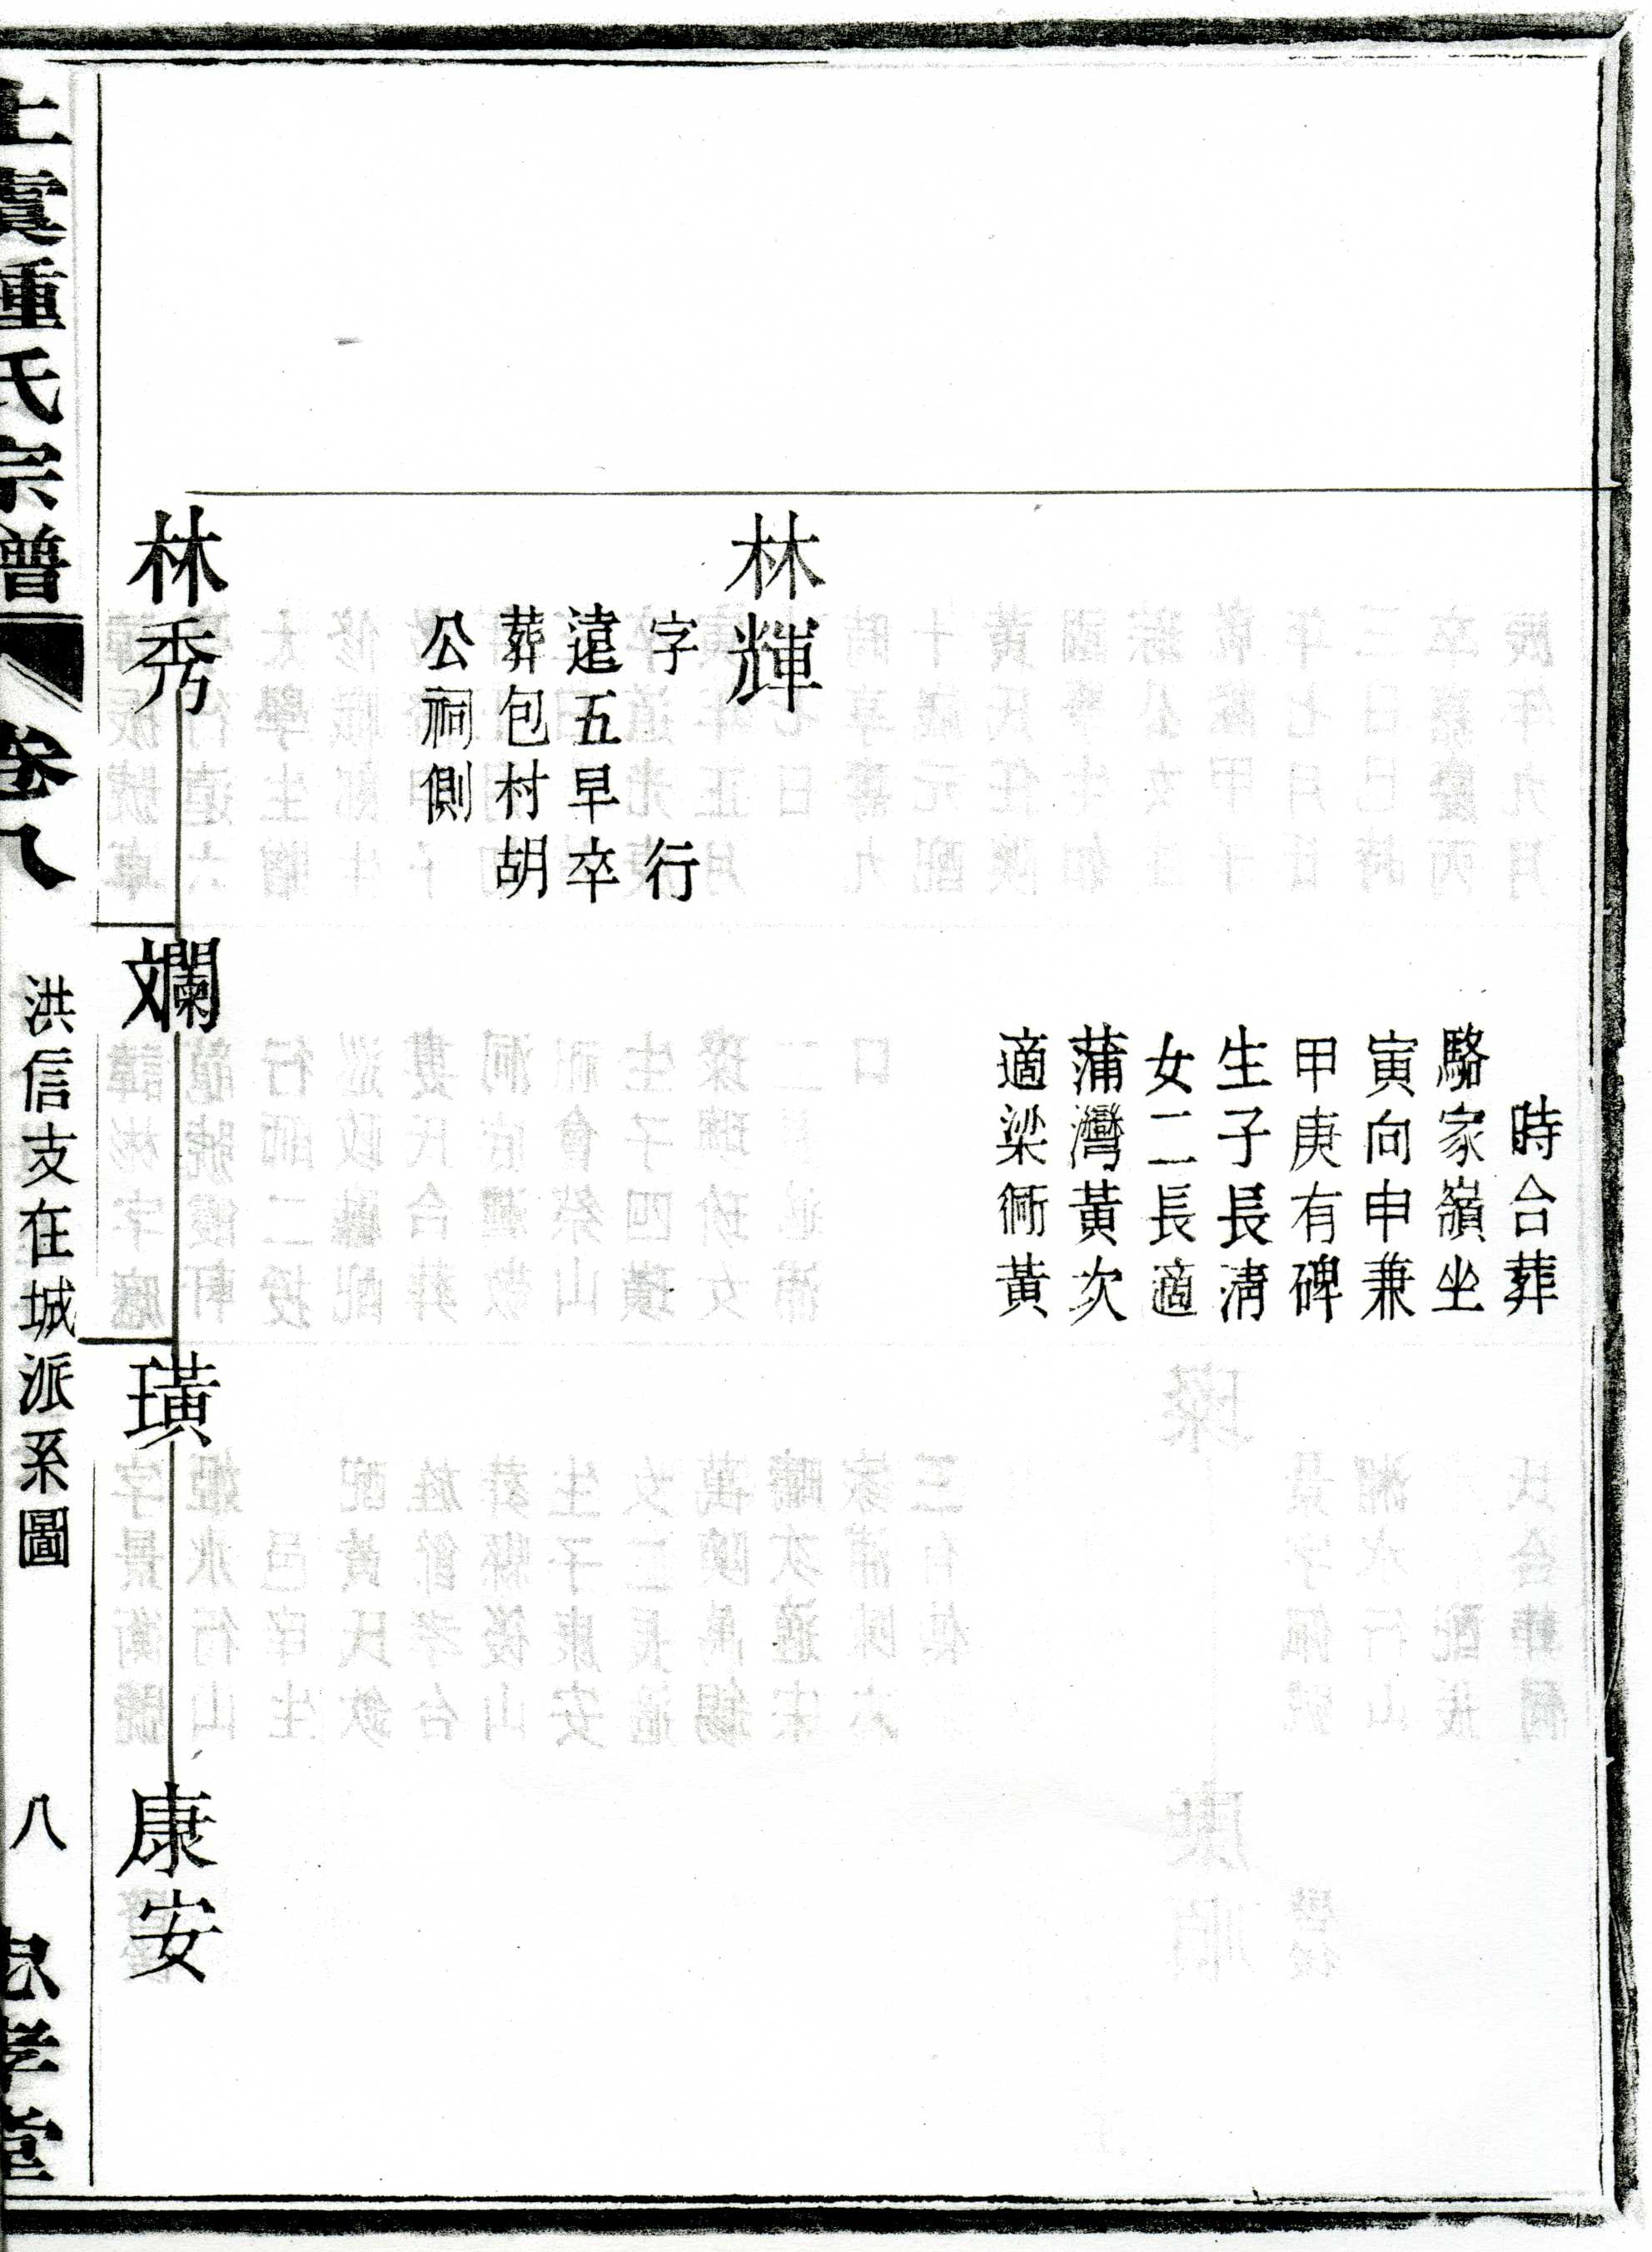 時合葬
駱家嶺坐
寅向申兼
甲庚有碑
生子長淸
女二長適
蒲灣黃次
適梁衖黃
林輝
字 行
遠五早卒
葬包村胡
公祠側
林秀
斕
璜
康安
上虞鍾氏宗譜
卷八
洪信支在城派系圖
八
忠孝堂